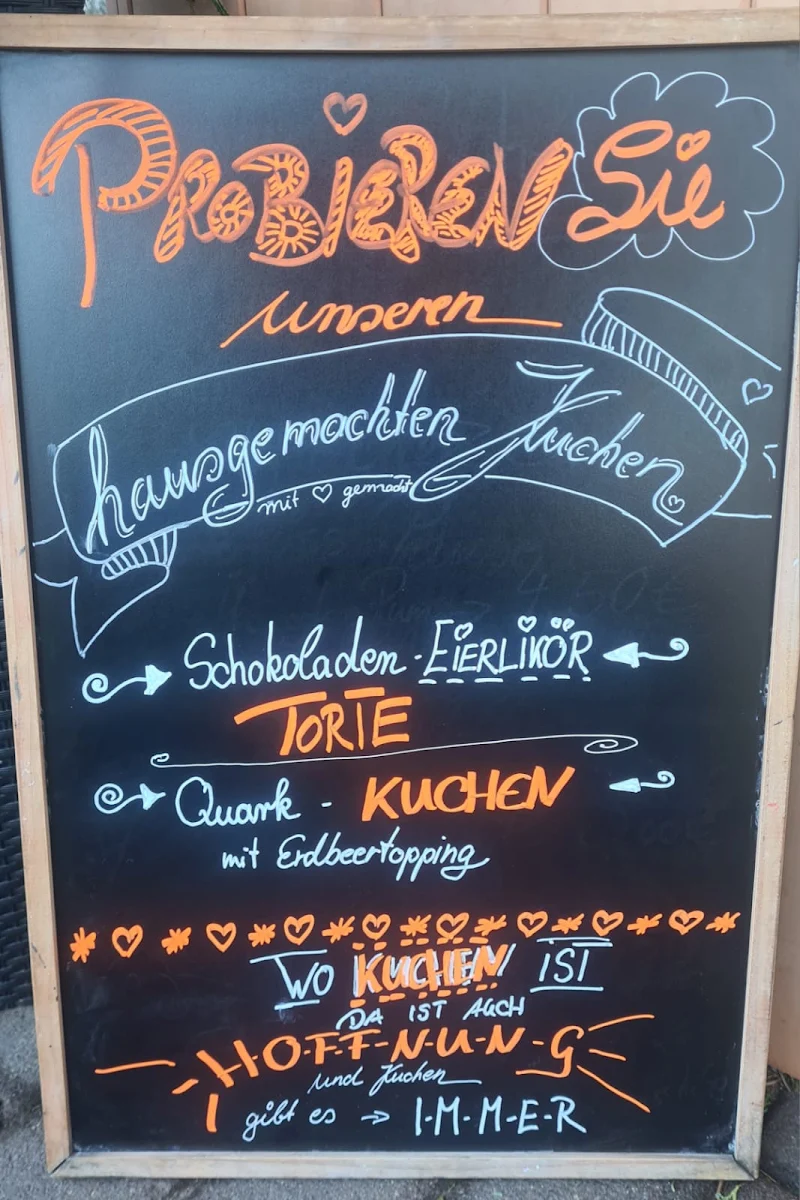 PROBIEREN Sie
unseren
hausgemachten Kuchen
mit ♡ gemacht
Schokoladen - EIERLIKÖR
TORTE
Quark - KUCHEN
mit Erdbeertopping
WO KUCHEN IST
DA IST AUCH
H-O-F-F-N-U-N-G
und Kuchen
gibt es → I-M-M-E-R